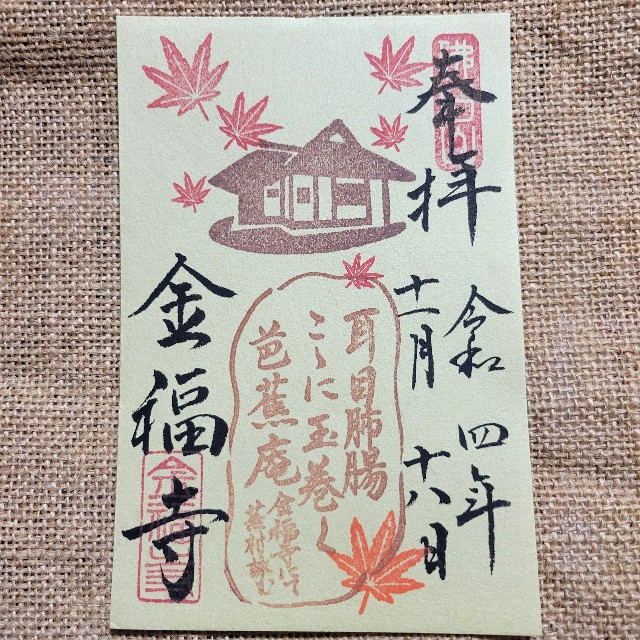 奉拝
令和四年
十一月十八日
耳目肺腸
こゝに玉巻く
芭蕉庵
金福寺にて
蕪村詠む
金福寺